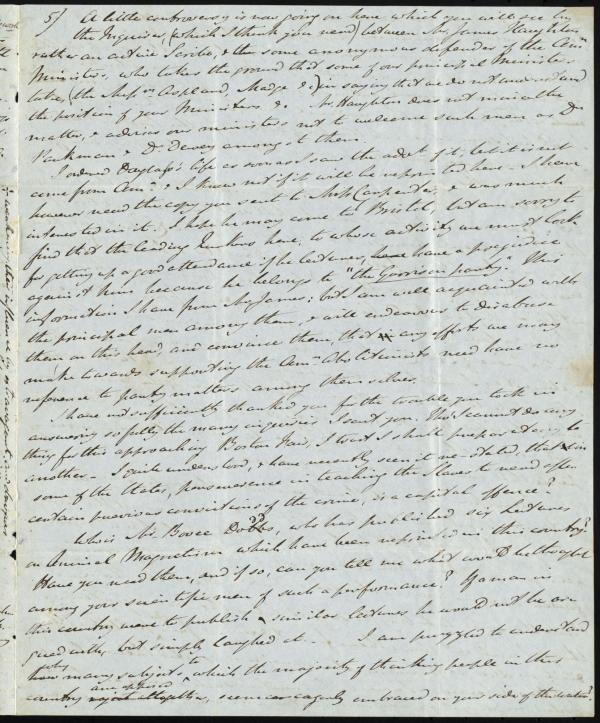 5/ A little controversy is now going on here which you will see by
the Inquirer (which I think you read) between Mr James Haughton
rather an active Scribe, & the some anonymous defender of the Amn
Ministers, who takes the ground that some of our principal Ministers
take, (the Messrs Aspland, Madge &c) in saying that we do not understand
the position of your Ministers &c. Mr Haughton does not mince the
matter, & advises our ministers not to welcome such men as Dr
Parkman & Dr Dewey amongst them.
I ordered Douglass's life as soon as I saw the advt of it, but it is not
come from Amn & I know not if it will be reprinted here. I have
however read the copy you sent to Miss Carpenter & was much
interested in it. I hope he may come to Bristol, but am sorry to
find that the leading Quakers here, to whose activity we must look
for getting up a good attendance if he lectures, have a prejudice
against him because he belongs to "the Garrison party." This
information I have from Mr James; but I am well acquainted with
the principal men among them, & will endeavour to disabuse
them on this head, and convince them, that any efforts we may
make towards supporting the Amn Abolitionists need have no
reference to party matters among themselves.
I have not sufficiently thanked you for the trouble you took in
answering so fully the many inquiries I sent you. Tho' I cannot do any
thing for this approaching Boston Fair, I trust I shall be prepared by
another - I quite understood, & have recently seen it re-stated, that in
some of the States, perseverance in teaching the slaves to read after
certain previous convictions of the crime, is a capital offence?
Who is Mr Bovee Dods, who has published six Lectures
on Animal Magnetism which have been reprinted in this country?
Have you read them, and if so, can you tell me what would be thought
among your scientific men of such a performance? If a man in
this country were to publish similar lectures he would not be ar-
gued with, but simply laughed at. I am puzzled to understand
how many subjects to which the majority of thinking people in this
country are opposed, seem so eagerly embraced on your side of the water?